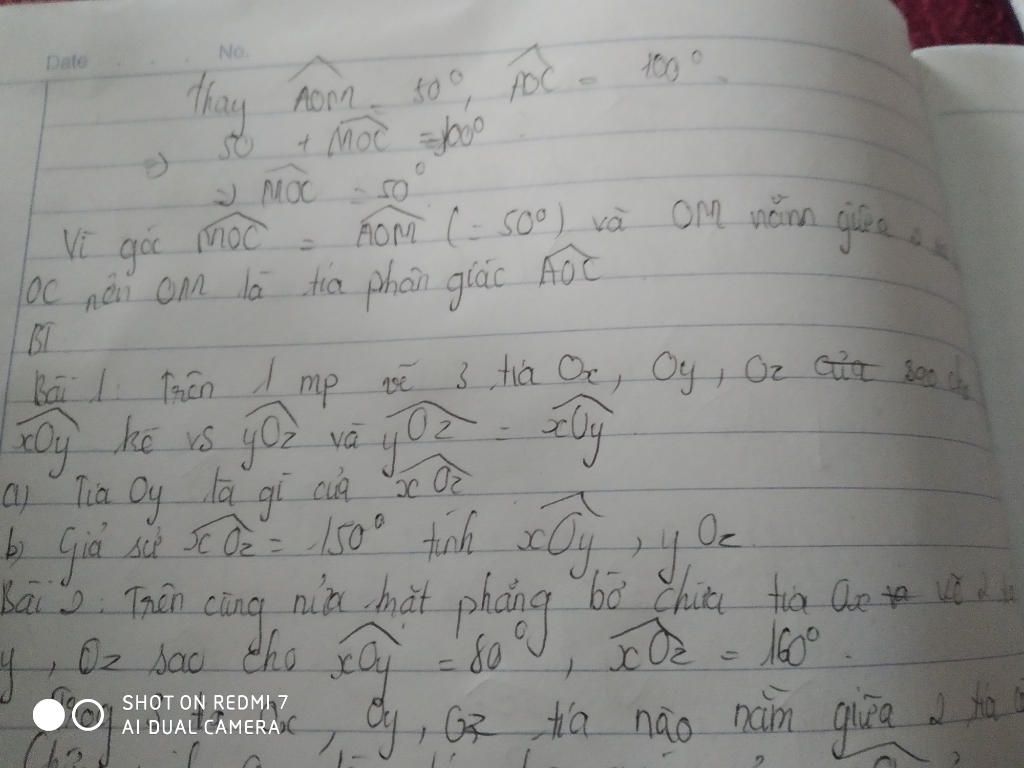 Date . . . . No.
Thay AOM = 50°, AOC = 100°.
=> 50 + MOC = 100°
=> MOC = 50°
Vì góc MOC = AOM (= 50°) và OM nằm giữa
OC nên OM là tia phân giác AOC
BT
Bài 1: Trên 1 mp vẽ 3 tia Ox, Oy, Oz của sao cho
xOy kề vs yOz và yOz = xOy
a) Tia Oy là gì của xOz
b) Giả sử xOz = 150° tính xOy, yOz
Bài 2: Trên cùng nửa mặt phẳng bờ chứa tia Ox vẽ 2
y, Oz sao cho xOy = 80°, xOz = 160°.
Oy, Oz tia nào nằm giữa 2 tia
SHOT ON REDMI 7
AI DUAL CAMERA